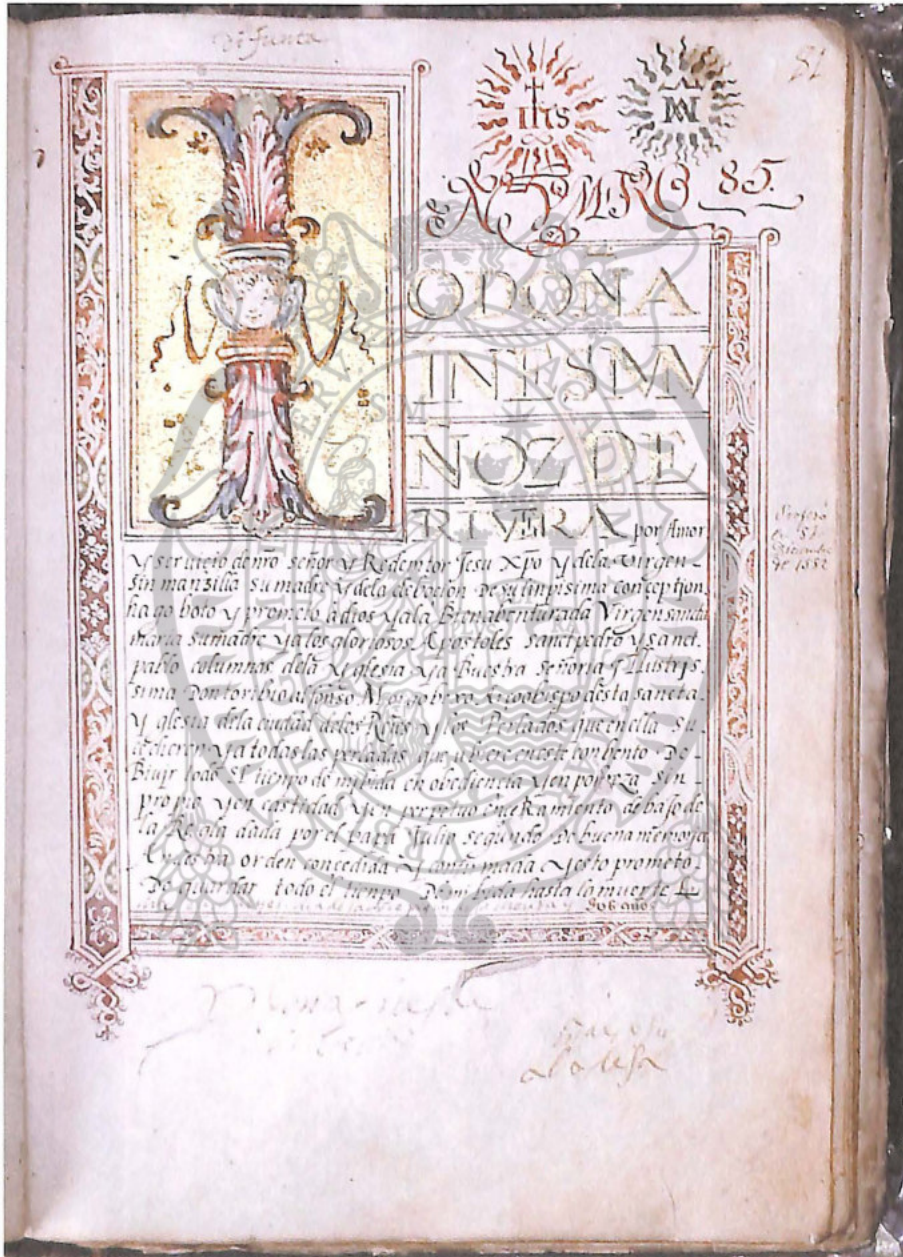 Difunta
81
IHS
NVMRO 85.
IO DOÑA
INES MV
ÑOZ DE
RIVERA por Amor
y servicio de nrõ señor y Redemtor Jesu Xpõ y dela Virgen
sin manzilla su madre y dela debocion De su linpisima conception.
hago boto y prometo a dios y ala Bienabenturada Virgen sancta
maria su madre y a los gloriosos Apostoles sanct pedro y sanct.
pablo columnas dela yglesia y a Buestra señoria Yllustris-
sima Don toribio alfonso Mogrobejo Arçobispo desta sancta.
Y glesia dela ciudad delos Reyes y los Perlados que en ella su
cedieren y a todas las perladas que ubiere en este conbento De
Biuir todo el tienpo de mi bida en obediencia y en pobreza sin
propio y en castidad y en perpetuo encerramiento debajo de
la Regla dada por el papa Julio segundo De buena memoria
A nuestra orden concedida Y confirmada y esto prometo
De guardar todo el tienpo De mi bida hasta la muerte
Profesó
de 1582
Doña ines de
abbesa